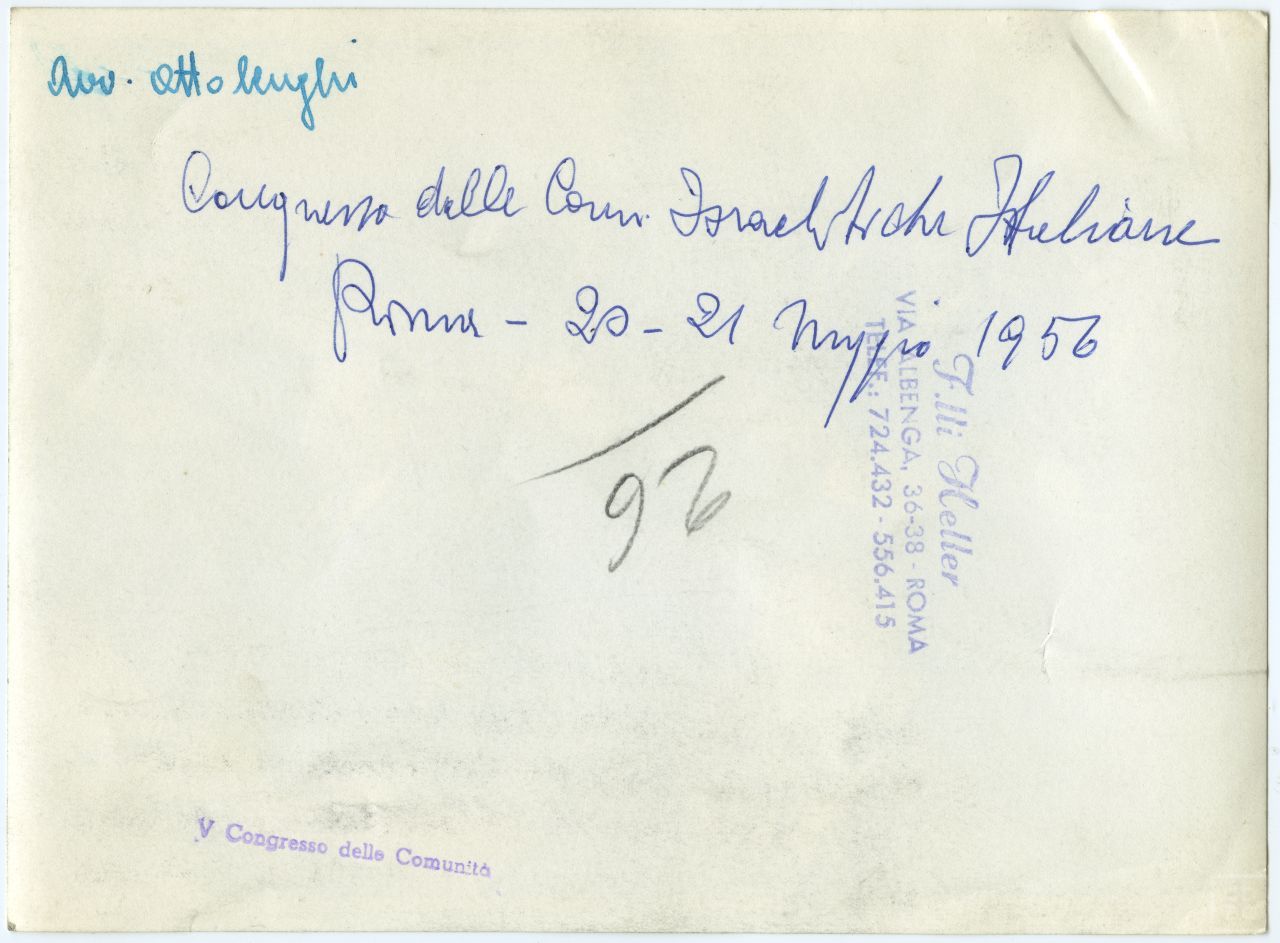 Avv. Ottolenghi
Congresso delle Com. Israelitiche Italiane
Roma - 20-21 Maggio 1956
F.lli Heller
VIA ALBENGA, 36-38 - ROMA
TELEF.: 724.432 - 556.415
V Congresso delle Comunità